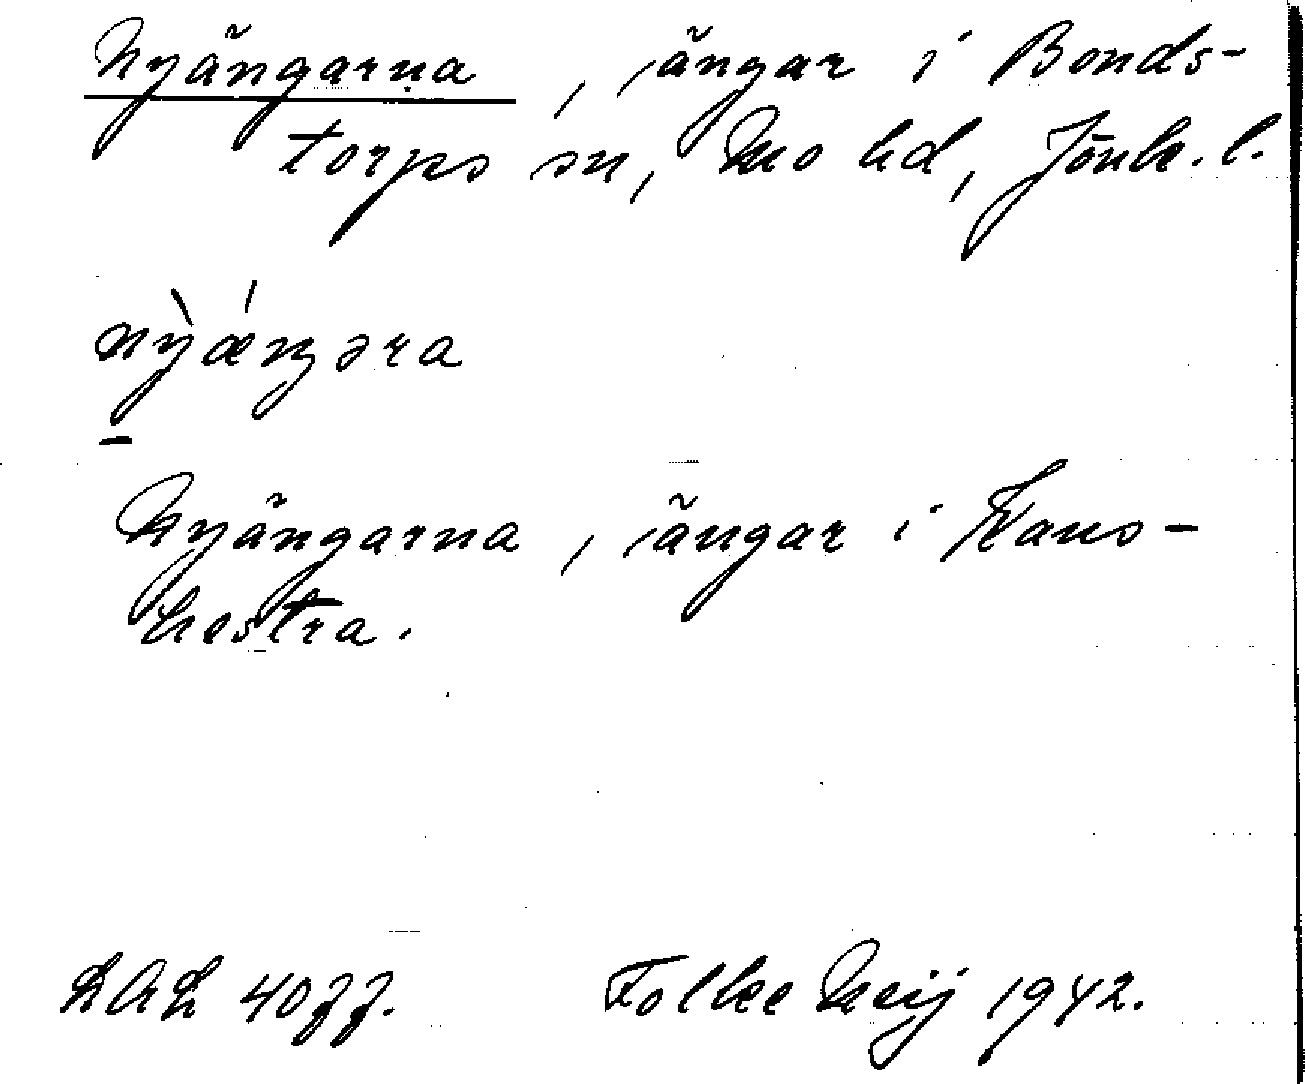 Nyängarna, ängar i Bonds-
torps sn, Mo hd, Jönk. l.
nỳǽŋəra
Nyängarna, ängar i Kans-
hestra.
LAL 4077. Folke Neij 1942.